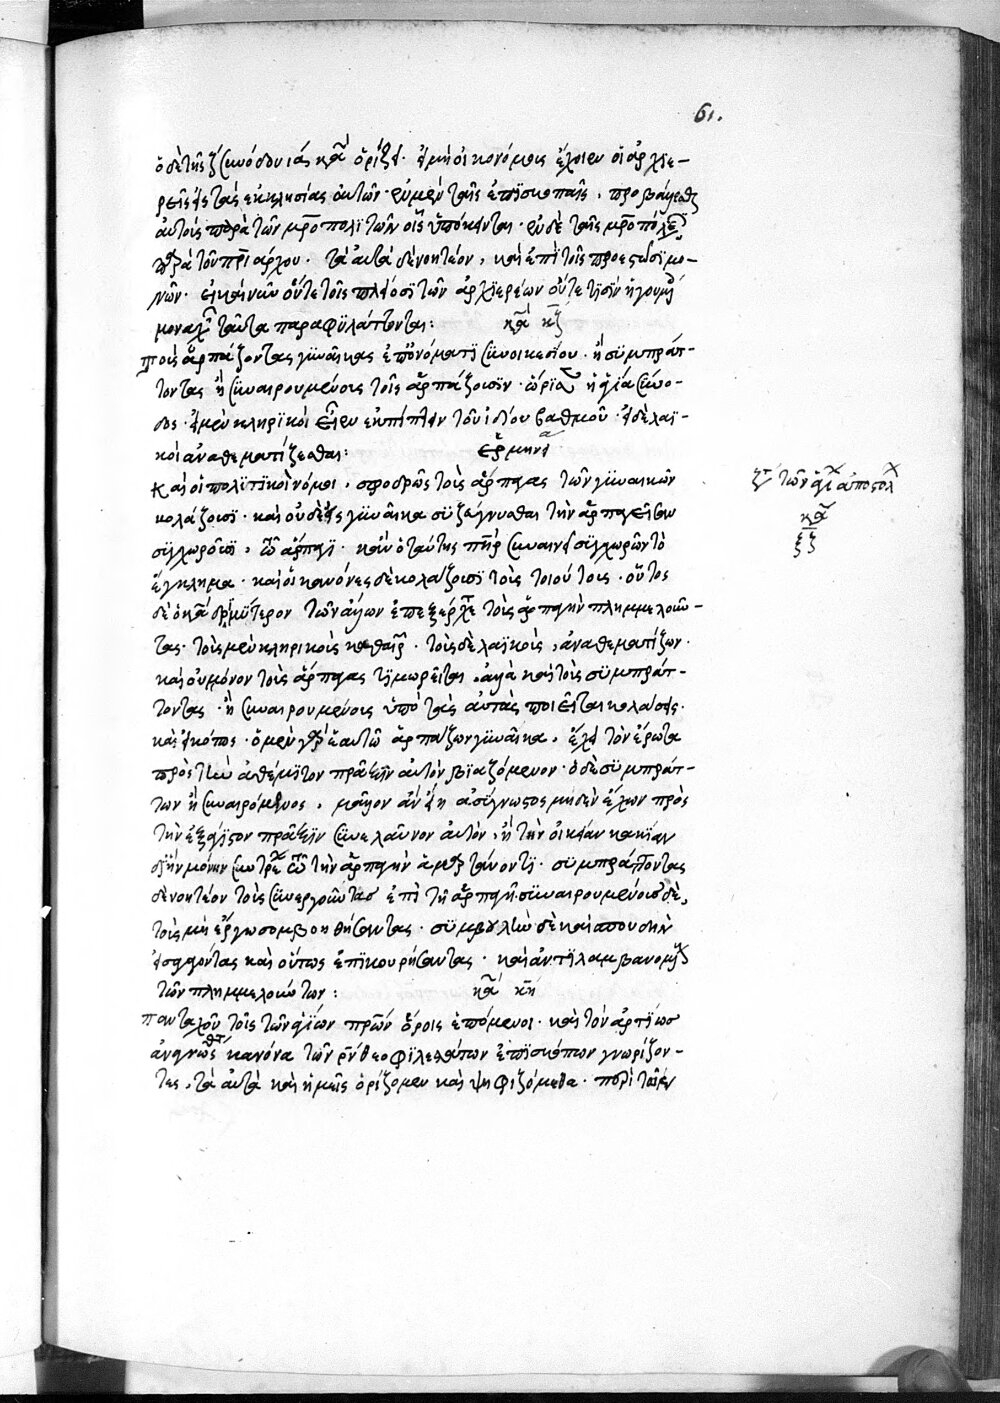 61.
ὁ δὲ τῆς ζ συνόδου ια κα ὁρίζει · εἰ μὴ οἰκονόμους ἔχοιεν οἱ ἀρχιε-
ρεῖς εἰς τὰς ἐκκλησίας αὐτῶν · ἐν μὲν ταῖς ἐπισκοπαῖς, προβάλλεσθαι
αὐτοὺς παρὰ τῶν μροπολιτῶν οἷς ὑπόκεινται · ἐν δὲ ταῖς μροπόλεσι,
παρὰ τοῦ πριάρχου · τὰ αὐτὰ δὲ νοητέον, καὶ ἐπὶ τοῖς προεστῶσι μο-
νῶν · εἰ καὶ νῦν οὔτε τοῖς πλείοσι τῶν ἀρχιερέων οὔτε τισὶν ἡγουμ
μοναχ ταῦτα παραφυλάττονται: κα κζ
τοὺς ἁρπάζοντας γυναῖκας ἐπ' ὀνόματι συνοικεσίου · ἢ συμπράτ-
τοντας ἢ συναιρουμένους τοῖς ἁρπάζουσιν · ὥρισεν ἡ ἁγία σύνο-
δος · εἰ μὲν κληρικοὶ εἶεν ἐκπίπτειν τοῦ ἰδίου βαθμοῦ · εἰ δὲ λαϊ-
κοὶ ἀναθεματίζεσθαι: ἑρμηνεία
Καὶ οἱ πολιτικοὶ νόμοι, σφοδρῶς τοὺς ἅρπαγας τῶν γυναικῶν
κολάζουσι · καὶ οὐδὲ εἰς γυναῖκα συζεύγνυσθαι τὴν ἁρπαγεῖσαν
συγχωροῦσι, τῷ ἅρπαγι · κἂν ὁ ταύτης πηρ συναινεῖ συγχωρῶν τὸ
ἔγκλημα · καὶ οἱ κανόνες δὲ κολάζουσι τοὺς τοιούτους · οὗτος
δὲ ὁ κα δριμύτερον τῶν ἄλλων ἐπεξέρχεται τοὺς ἁρπαγὴν πλημμελοῦν-
τας · τοὺς μὲν κληρικοὺς καθαιρ · τοὺς δὲ λαϊκοὺς, ἀναθεματίζων ·
καὶ οὐ μόνον τοὺς ἅρπαγας τιμωρεῖται, ἀλλὰ καὶ τοὺς συμπράτ-
τοντας · ἢ συναιρουμένους ὑπὸ τὰς αὐτὰς ποιεῖται κολάσεις ·
καὶ εἰκότως · ὁ μὲν γὰρ ἑαυτῷ ἁρπάζων γυναῖκα, ἔχει τὸν ἔρωτα
πρὸς τὴν ἀθέμιτον πρᾶξιν αὐτὸν βιαζόμενον · ὁ δὲ συμπράτ-
των ἢ συναιρόμενος, μᾶλλον ἂν εἴη ἀσύγνωστος μηδὲν ἔχων πρὸς
τὴν ἐξάγιστον πρᾶξιν συνελαῦνον αὐτὸν, ἢ τὴν οἰκείαν κακίαν
δι' ἣν μόνην συντρέχει τῷ τὴν ἁρπαγὴν ἁμαρτάνοντι · συμπράττοντας
δὲ νοητέον τοὺς συνεργοῦντας ἐπὶ τῇ ἁρπαγῇ · συναιρουμένους δὲ,
τοὺς μὴ ἔργῳ σομβοηθήσαντας · συμβουλὴν δὲ καὶ σπουδὴν
εἰσαγαγόντας καὶ οὕτως ἐπικουρήσαντας · καὶ ἀντιλαμβανομ
τῶν πλημμελούντων: κα κη
πανταχοῦ τοῖς τῶν ἁγίων πρων ὅροις ἑπόμενοι · καὶ τὸν ἀρτίως
ἀναγνωσθέντα κανόνα τῶν ρν θεοφιλεστάτων ἐπισκόπων γνωρίζον-
τες, τὰ αὐτὰ καὶ ἡμεῖς ὁρίζομεν καὶ ψηφιζόμεθα · περὶ τῶν
ζτ τῶν ἁγί ἀποστόλ
κα
ξζ